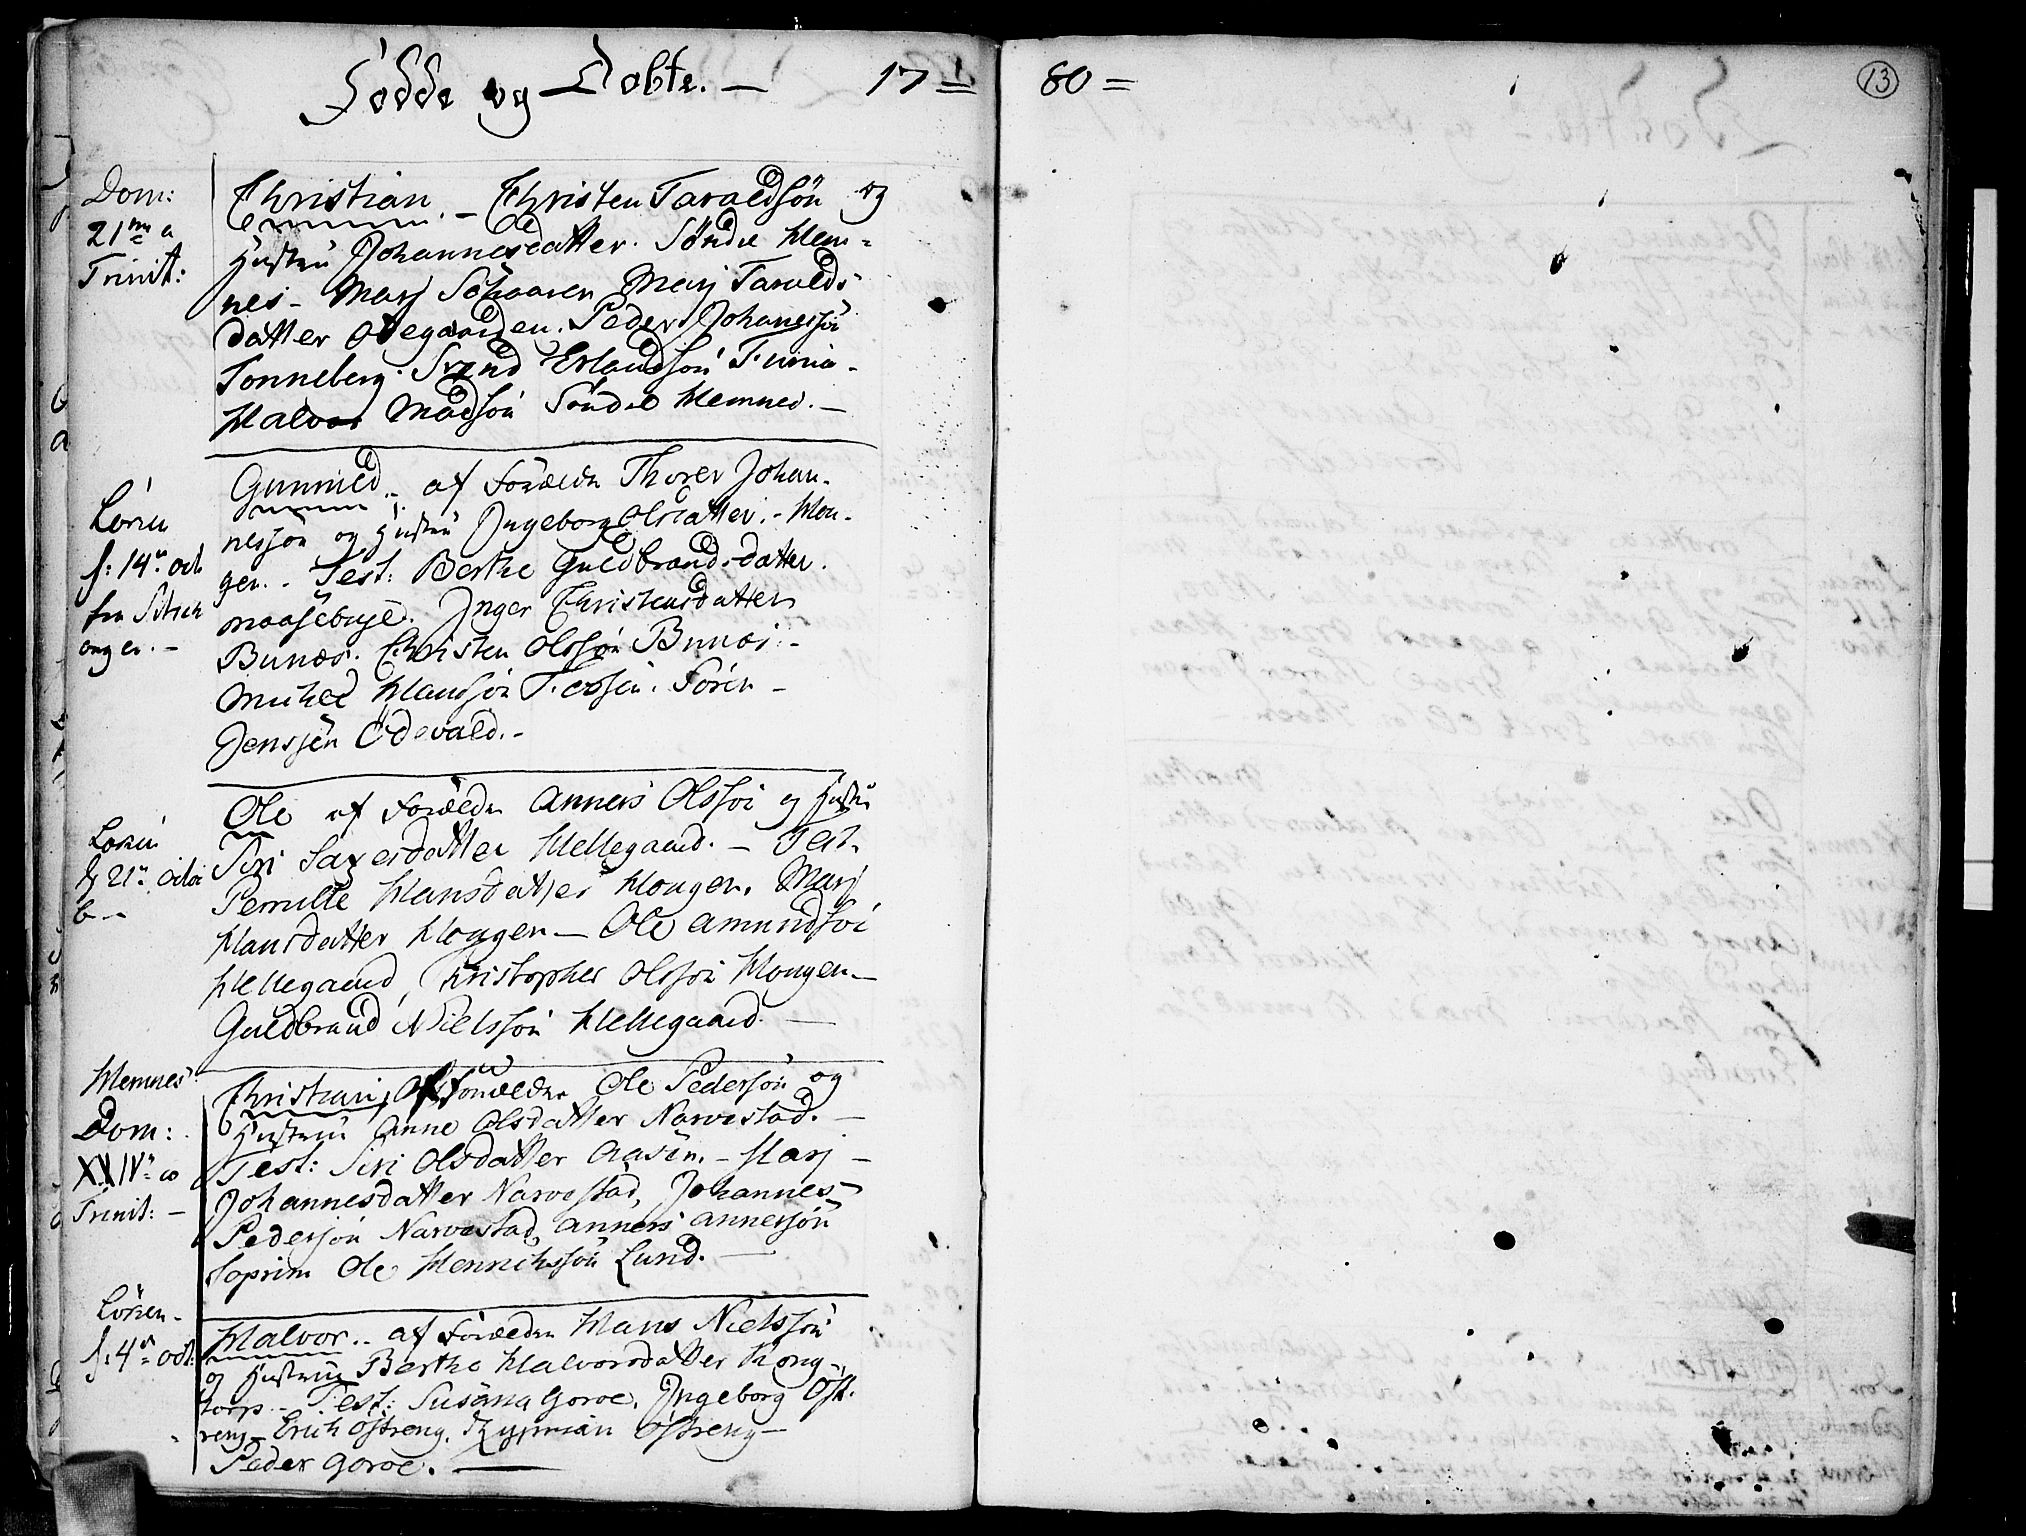 Födde og Döbte. — 17 = 80 =
13
Dom:
21me a
Trinit:
Christian. — Christen Taraldsön og
Hustru Johannesdatter. Söndre Hem=
nes — Marj Schaaren Marj Taralds
datter Ödegaarden. Peder Johanesön
Tonneberg. Svend Erlandsön Furia.
Halvor Madsön Söndre Hemnes. —
Lören
f: 14n oct
fra
anger. —
Gunnild.. af Forældre Thorer Johan-
nessön og Hustru Ingeborg Olsdatter. - Hou-
gen. - Test: Berthe Guldbrandsdatter.
maasebye. Inger Christensdatter
Bunæs. Christen Olssön Bunæs. -
Michel Hansön Fossen. Sören -
Jenssön Ödevald. -
Lören
d 21n
b —
Ole af Forældre Anners Olssön og Hustru
Siri Saxesdatter Hellegaard. — Test.
Pernille Hansdatter Hougen. Marj
Hansdatter Hougen — Ole Amundsön
Hellegaard, Christopher Olssön Hougen —
Guldbrand Nielssön Hellegaard. —
Hemnes
Dom:
XXIVn a
Trinit: —
Christian, Af Forældre Ole Pedersön og
Hustrue Anne Olsdatter Narvestad. —
Test: Siri Olsdatter Aasen. - Marj -
Johannesdatter Narvestad, Johannes
Pedersön Narvestad, Anners Annersön
Soprim Ole Henrichssön Lund. —
Lören -
f: 4n oct:
Halvor.. af Forældre Hans Nielssön
og Hustrue Berthe Halvorsdatter Kong-
torp - Test: Susana Goroe, Ingeborg Öst.
reng — Erich Östreng, Zyprian Östreng —
Peder Goroe. —